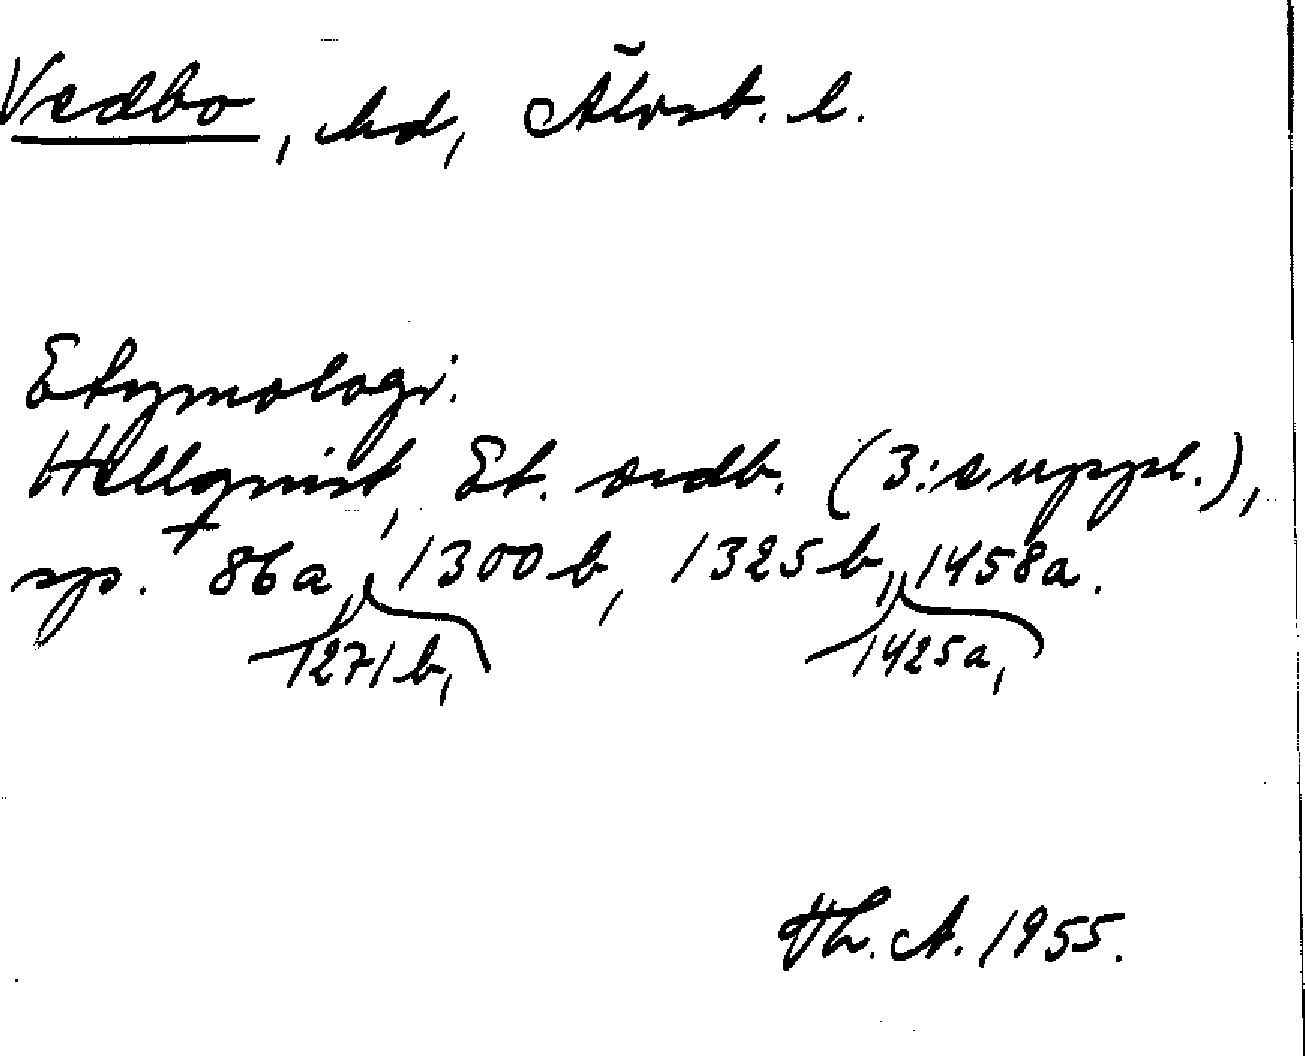 Vedbo, hd, Älvsb. l.
Etymologi.
Hellquist, Et. ordb. (3:e uppl.),
sp. 86a, 1271b, 1300b, 1325b, 1425a, 1458a.
Th. A. 1955.